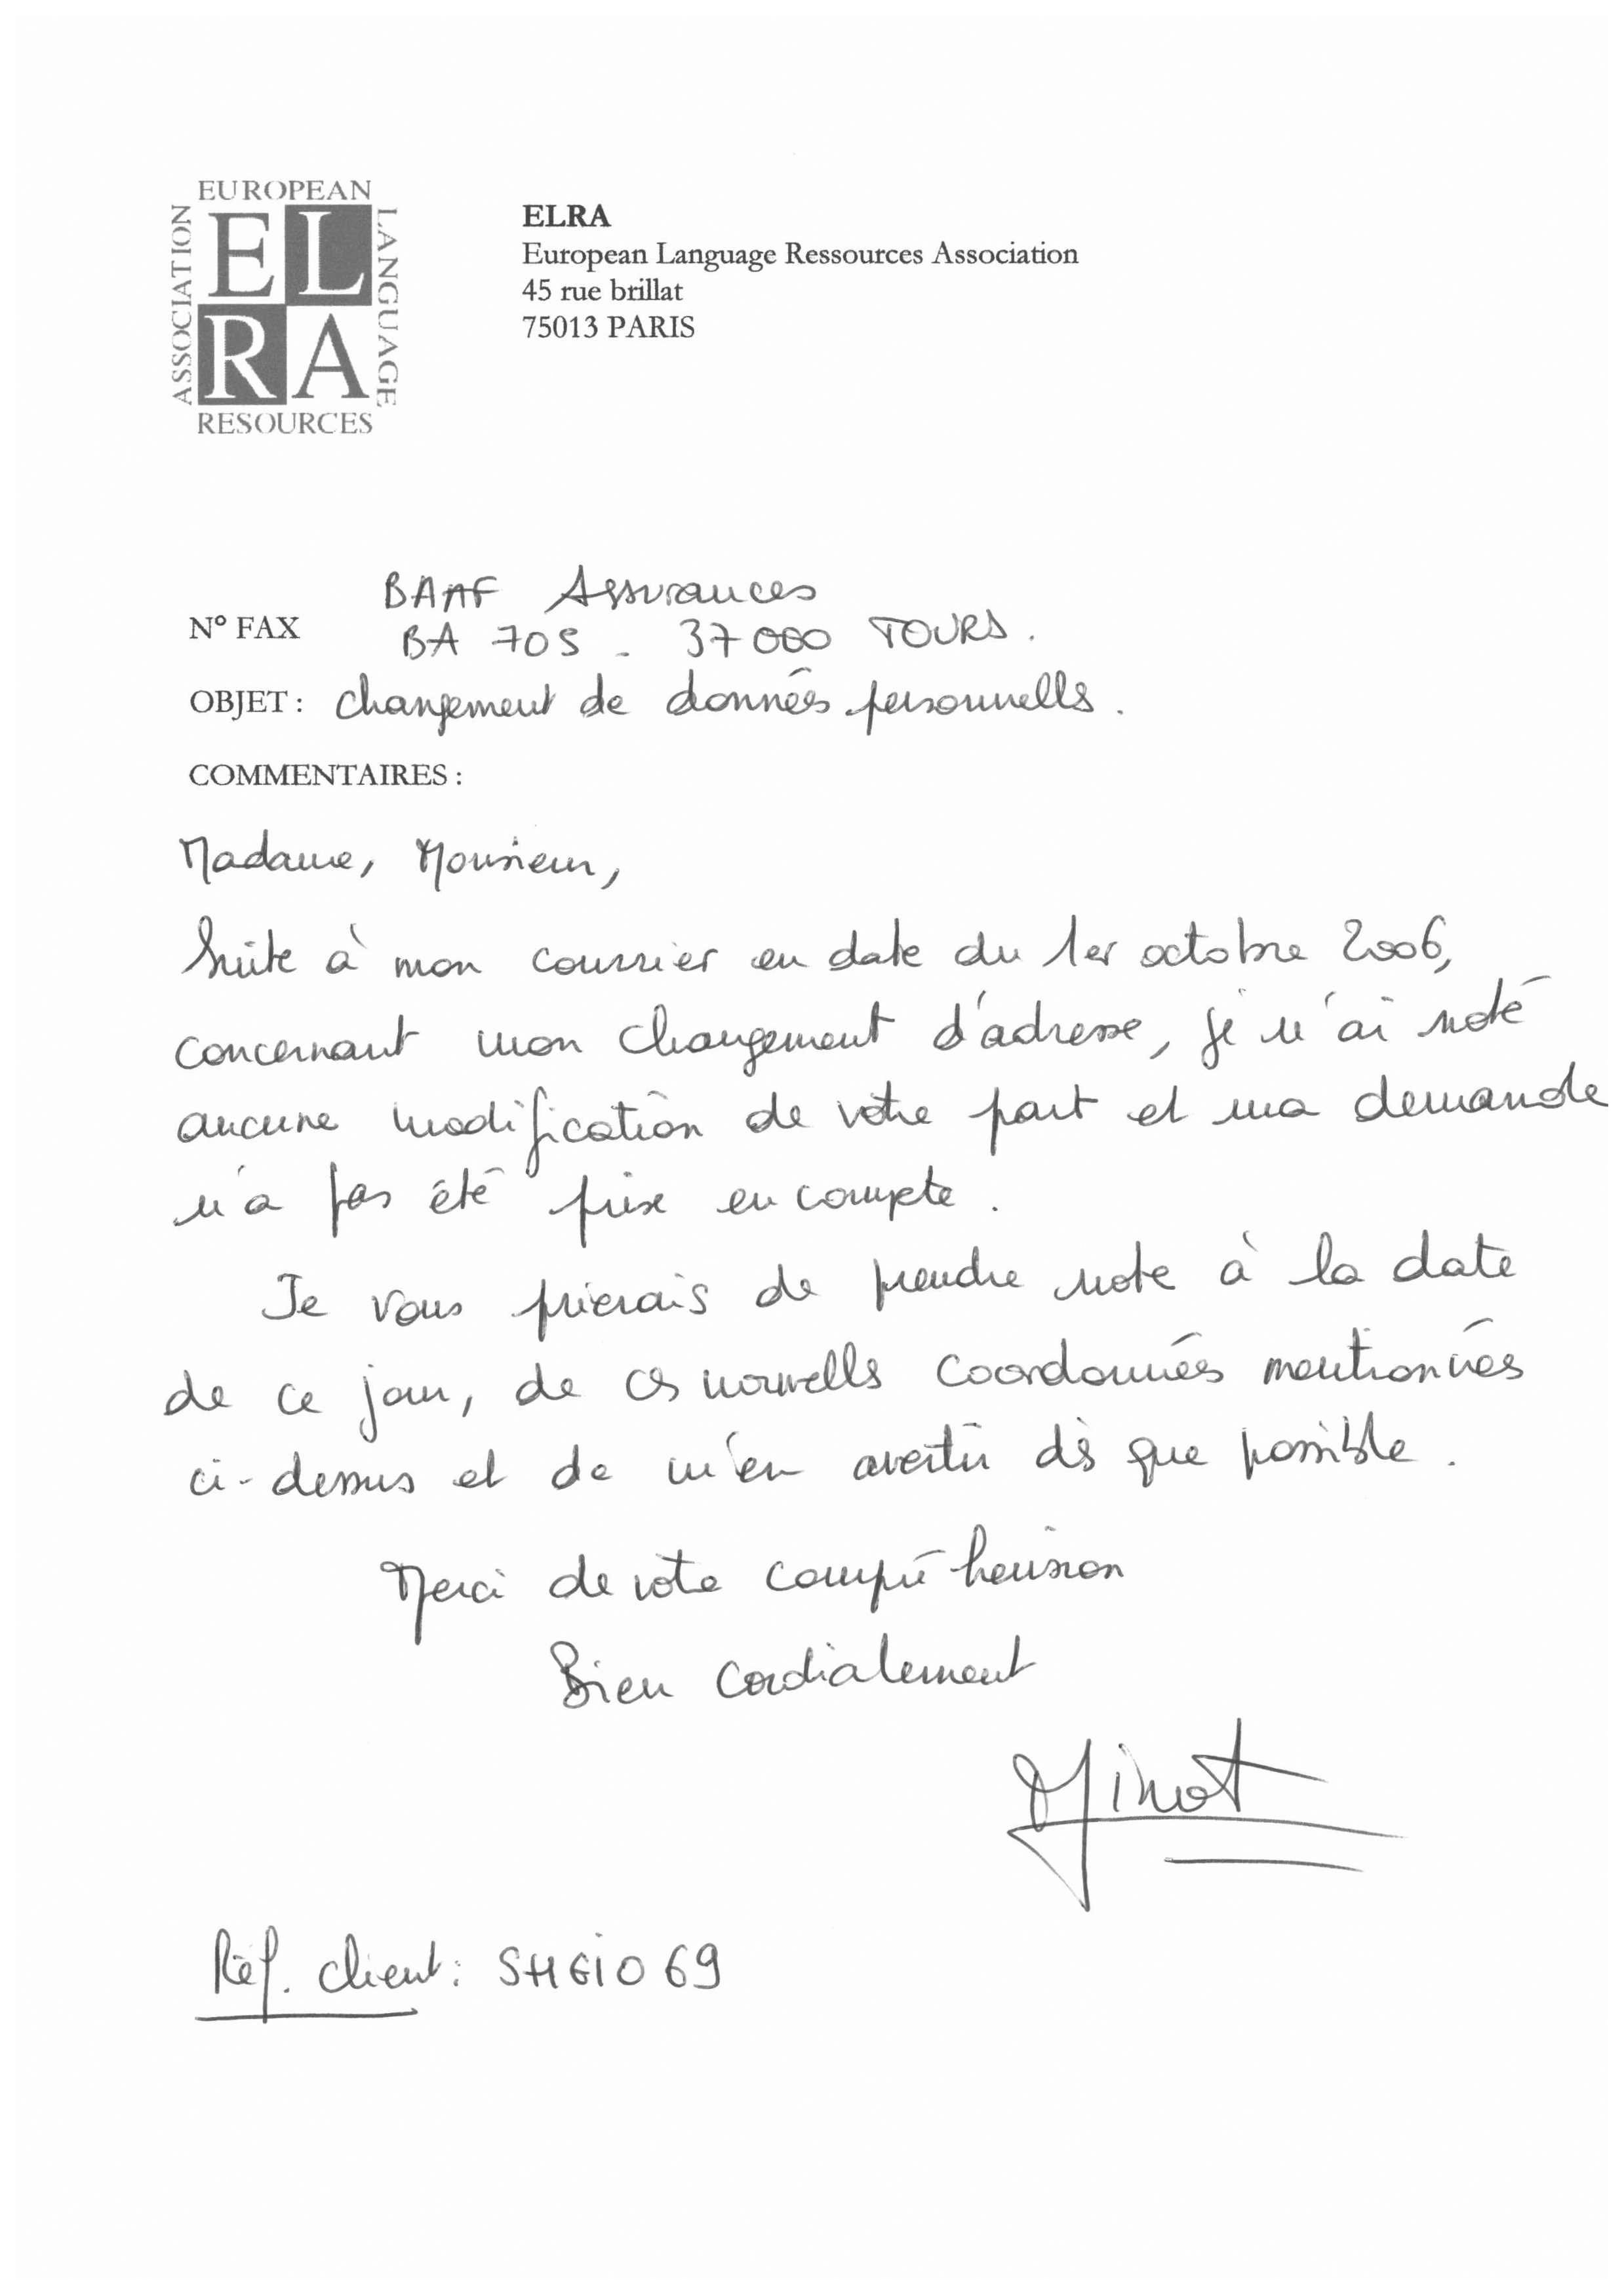 EUROPEAN
LANGUAGE
RESOURCES
ASSOCIATION
EL
RA
ELRA
European Language Ressources Association
45 rue brillat
75013 PARIS
BAAF Assurances
N° FAX BA 705 - 37000 TOURS.
OBJET : Changement de données personnells.
COMMENTAIRES :
Madame, Monsieur,
Suite à mon courrier en date du 1er octobre 2006,
concernant mon changement d'adresse, je n'ai noté
aucune modification de votre part et ma demande
n'a pas été prise en compte.
Je vous prierais de prendre note à la date
de ce jour, de ces nouvells coordonnées mentionnées
ci-dessus et de m'en avertir dès que possible.
Merci de votre compréhension
Bien Cordialement
Minot
Réf. client : SHGIO69